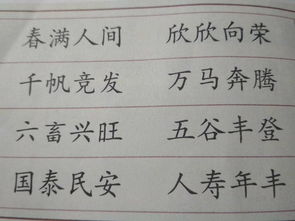 春满人间 欣欣向荣
千帆竞发 万马奔腾
六畜兴旺 五谷丰登
国泰民安 人寿年丰